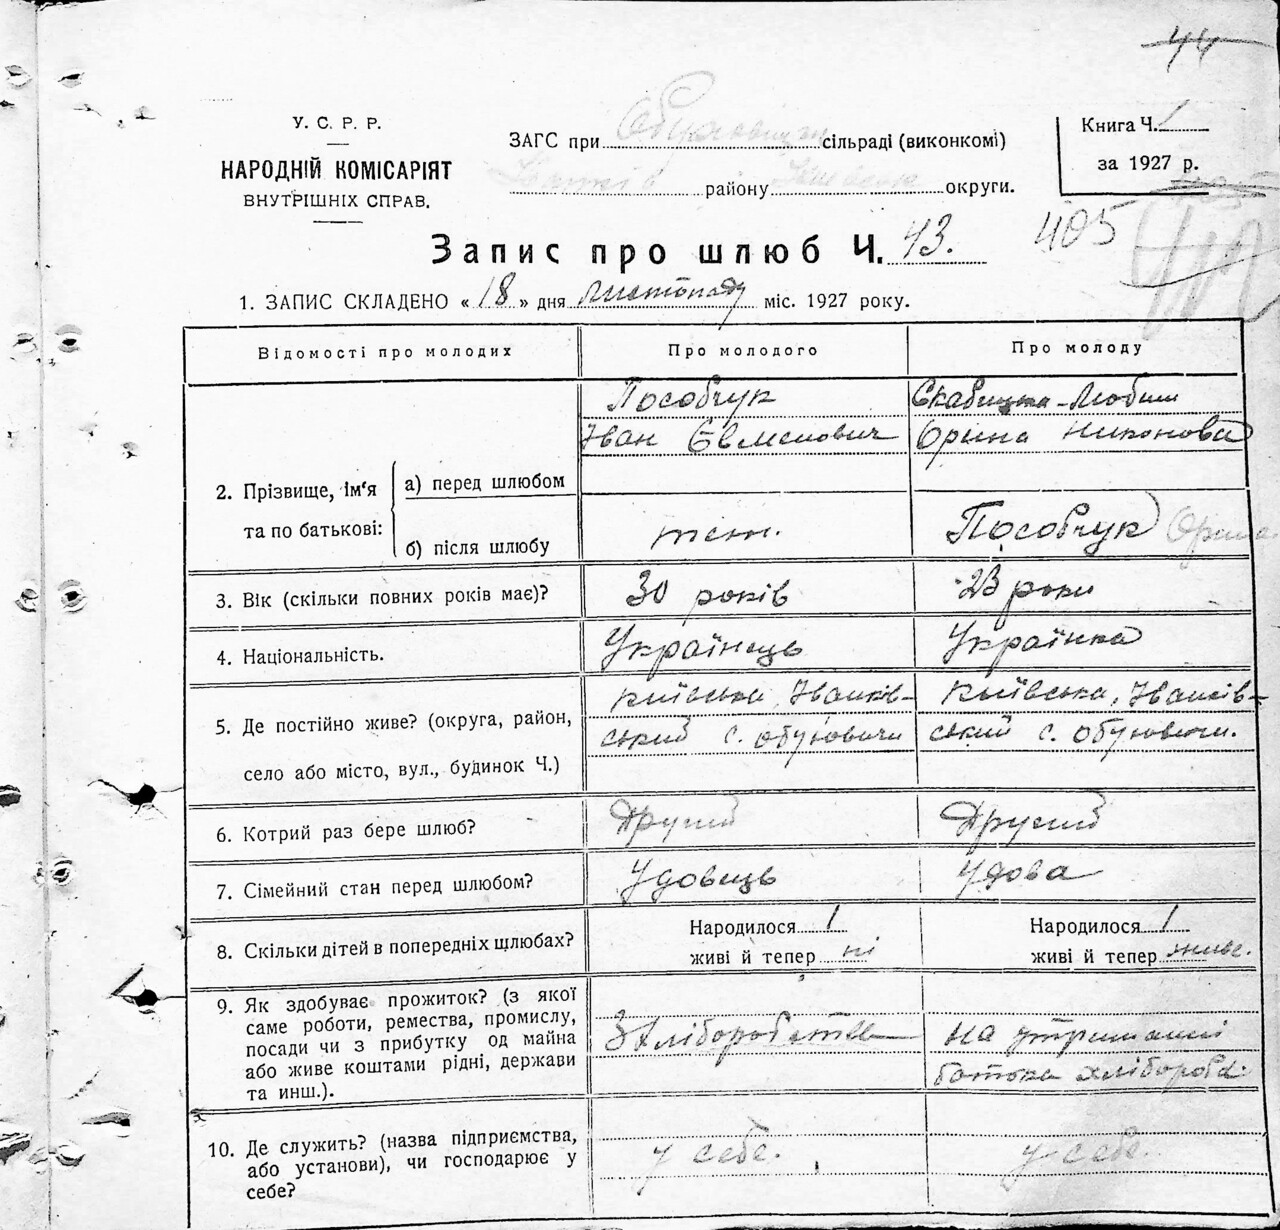 44
У. С. Р. Р.
НАРОДНІЙ КОМІСАРІЯТ
ВНУТРІШНІХ СПРАВ.
ЗАГС при Обуховицьк сільраді (виконкомі)
Іванків району Київськ округи.
Книга Ч. 1
за 1927 р.
405
Запис про шлюб Ч. 43.
1. ЗАПИС СКЛАДЕНО « 18 » дня Листопаду міс. 1927 року.
Відомості про молодих Про молодого Про молоду
Пособчук
Іван Євменович Орина Никонова
2. Прізвище, ім'я та по батькові:
а) перед шлюбом
б) після шлюбу теж. Пособчук Орина
3. Вік (скільки повних років має)? 30 років 23 роки
4. Національність. Українець Українка
5. Де постійно живе? (округа, район, село або місто, вул., будинок Ч.)
Київська, Іванків- Київська, Іванків-
ський с. Обуховичи ський с. Обуховичи.
6. Котрий раз бере шлюб? Другий Другий
7. Сімейний стан перед шлюбом? Удовець Удова
8. Скільки дітей в попередніх щлюбах? Народилося 1 Народилося 1
живі й тепер ні живі й тепер живе.
9. Як здобуває прожиток? (з якої
саме роботи, ремества, промислу,
посади чи з прибутку од майна
або живе коштами рідні, держави
та инш.).
З хліборобства На утриманні
батька хлібороба.
10. Де служить? (назва підприємства,
або установи), чи господарює у
себе?
у себе. у себе.